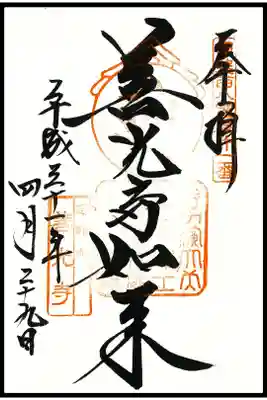 奉拝
善光寺如来
平成三十一年
四月二十九日